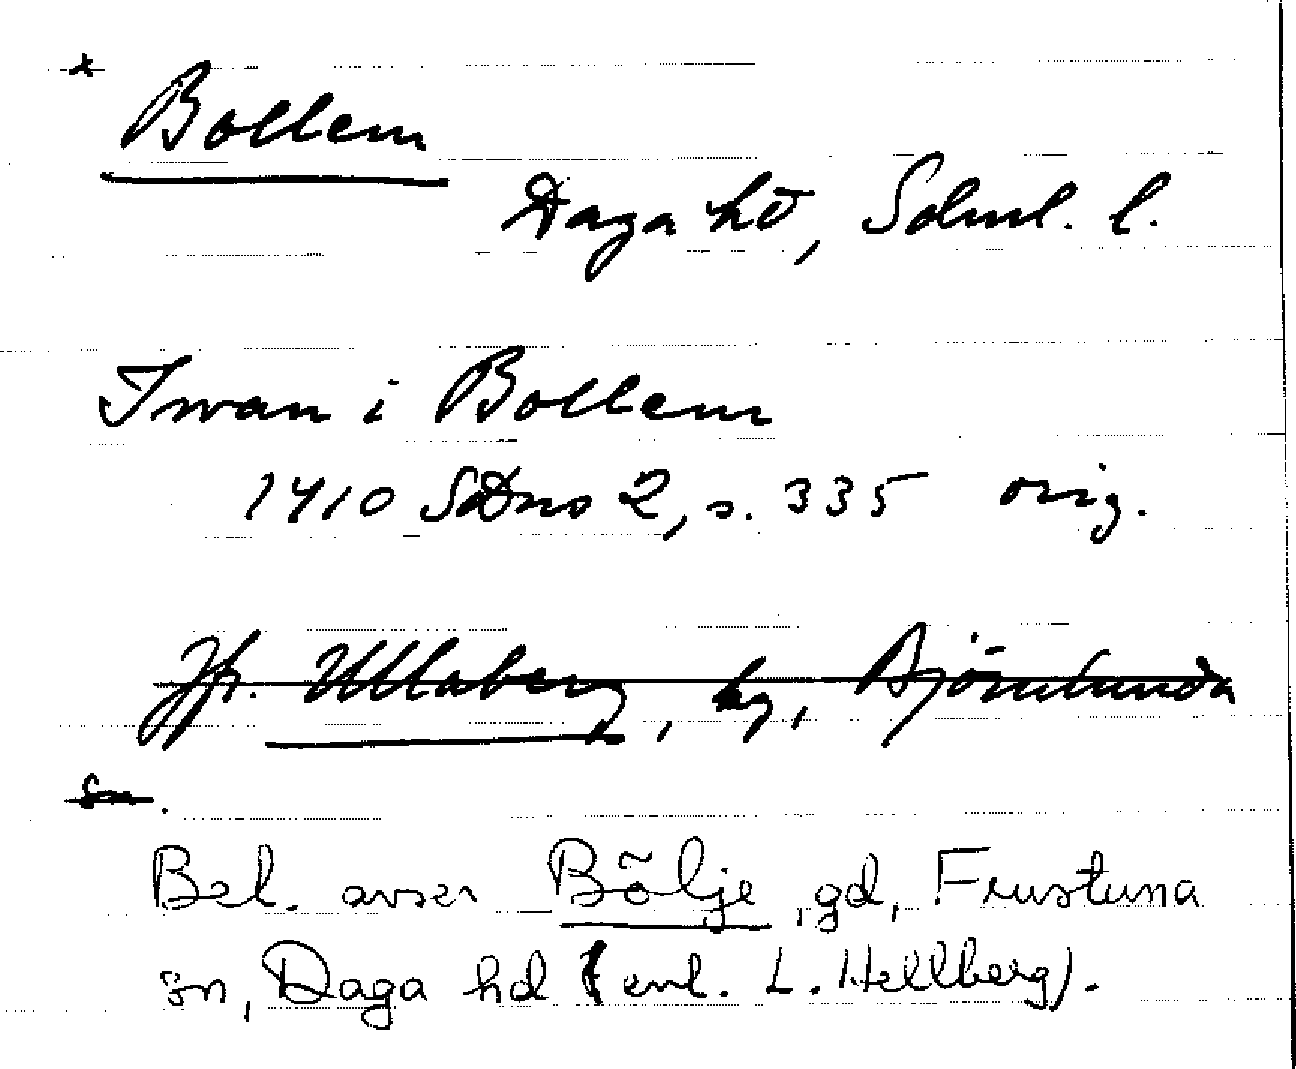 * Bollem
Daga hd, Södml. l.
Iwan i Bollem
1410 SDns 2, s. 335 orig.
Jfr. Ullaberg, by, Björnlunda
sn.
Bel. avser Bölje, gd, Frustuna
sn, Daga hd (enl. L. Hellberg).